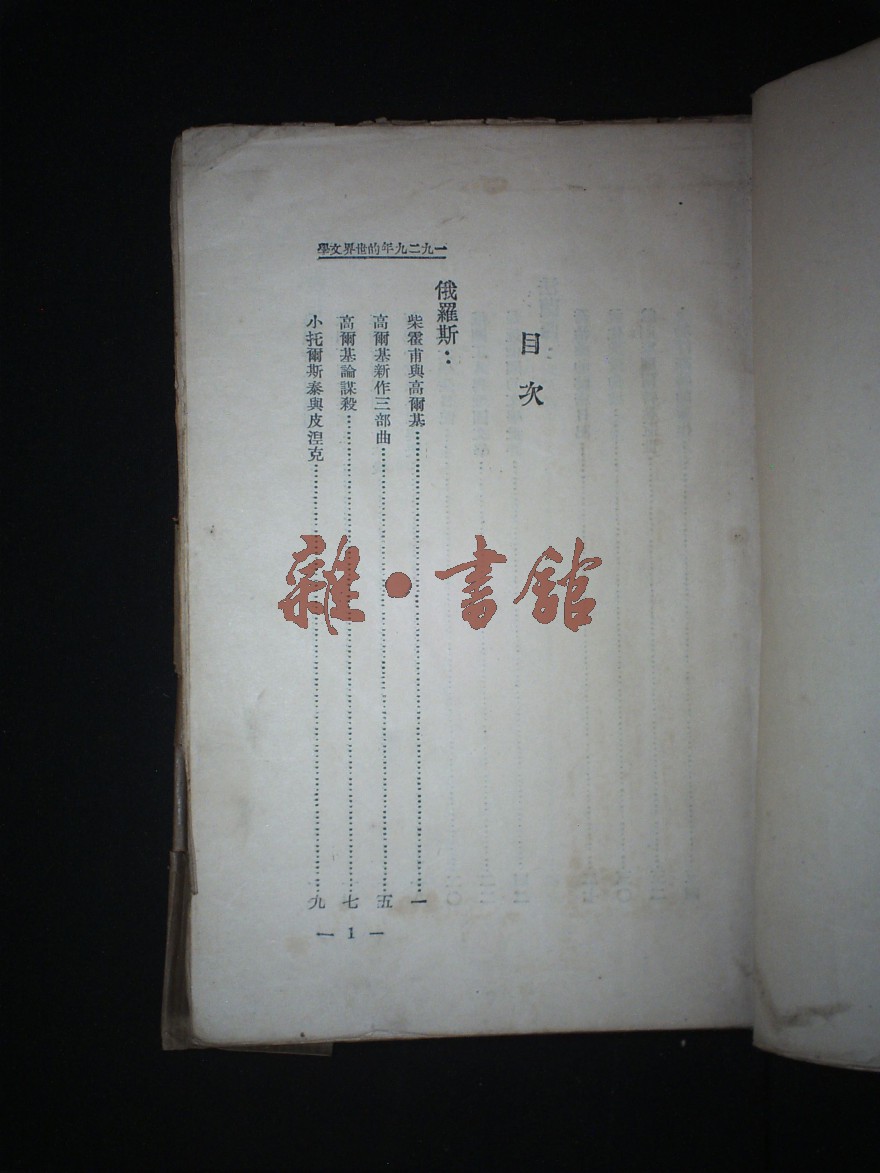 一九二九年的世界文學
目次
俄羅斯：
柴霍甫與高爾基……一
高爾基新作三部曲……五
高爾基論謀殺……七
小托爾斯泰與皮湼克……九
— 1 —
雜·書館